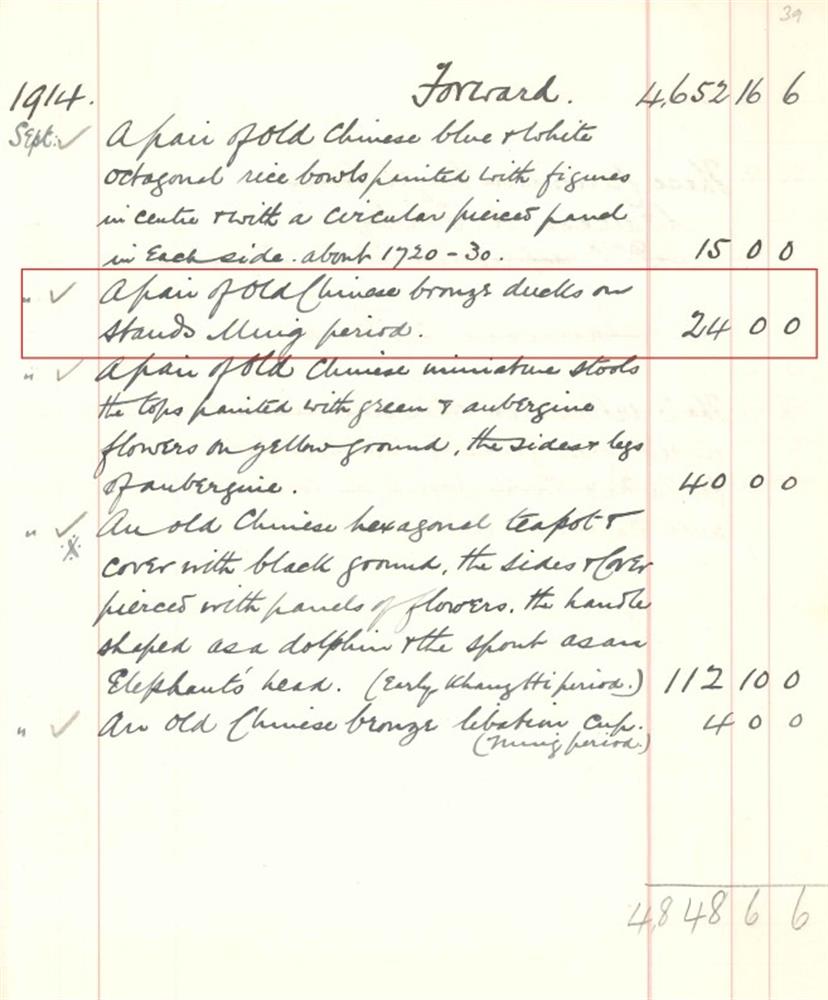 39
1914. Forward. 4,652 16 6
Sept: ✓ A pair of Old Chinese blue & White
octagonal rice bowls painted with figures
in centre & with a circular pierced panel
in Each side. about 1720-30. 15 0 0
" ✓ A pair of Old Chinese bronze ducks on
stands Ming period. 24 0 0
" ✓ A pair of Old Chinese miniature stools
the tops painted with green & aubergine
flowers on yellow ground, the sides & legs
of aubergine. 40 0 0
" ✓ An old Chinese hexagonal teapot &
cover with black ground, the sides & Cover
pierced with panels of flowers. the handle
shaped as a dolphin & the spout as an
Elephant's head. (Early Khang Hi period.) 112 10 0
" ✓ An Old Chinese bronze libation cup. 4 0 0
(Ming period.)
4,848 6 6